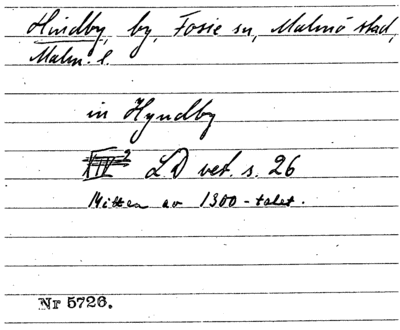 Hindby, by, Fosie sn, Malmö stad,
Malm. l.
in Hyndby
LD vet. s. 26
Mitten av 1300-talet.
Nr 5726.